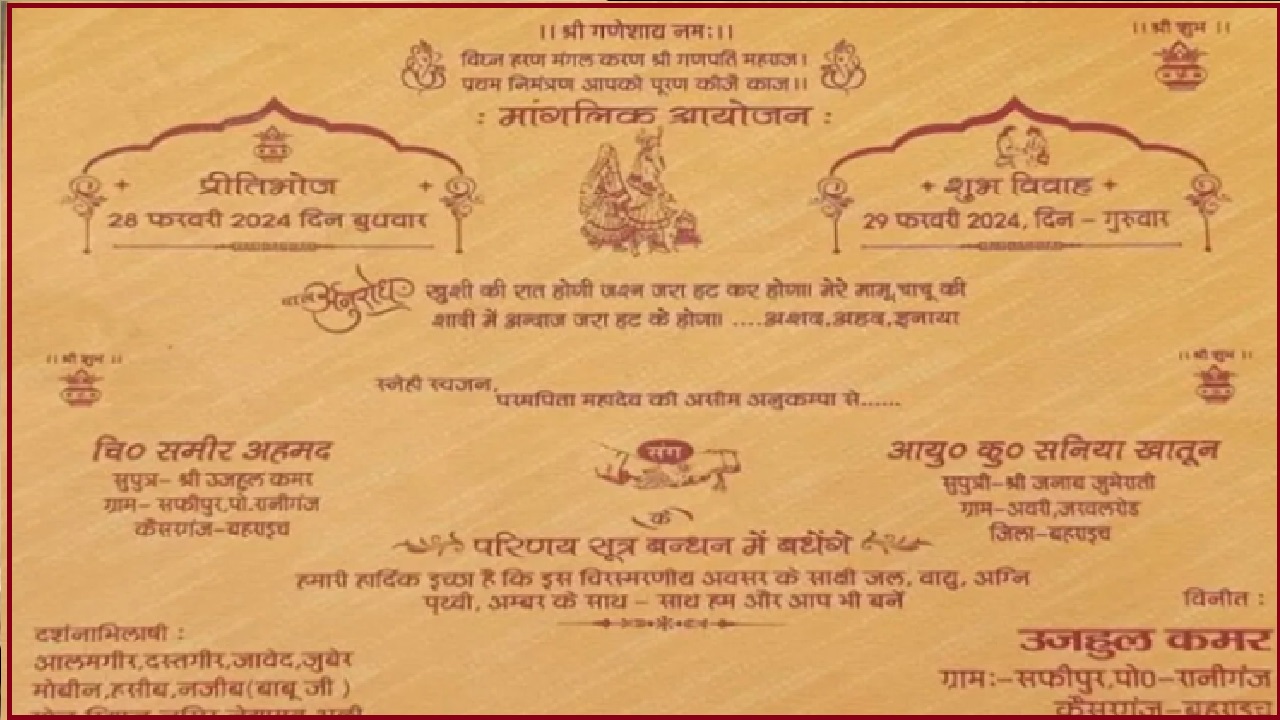 ।। श्री गणेशाय नमः।।
।। श्री शुभ ।।
विघ्न हरण मंगल करण श्री गणपति महराज।
प्रथम निमंत्रण आपको पूरण कीजै काज।।
: मांगलिक आयोजन :
प्रीतिभोज
28 फरवरी 2024 दिन बुधवार
शुभ विवाह
29 फरवरी 2024, दिन – गुरुवार
बाल अनुरोध
खुशी की रात होगी जश्न जरा हट कर होगा। मेरे मामू,चाचू की
शादी में अन्दाज जरा हट के होगा। ....अशद,अहद,इनाया
।। श्री शुभ ।।
।। श्री शुभ ।।
स्नेही स्वजन,
परमपिता महादेव की असीम अनुकम्पा से......
चि० समीर अहमद
सुपुत्र– श्री उजहुल कमर
ग्राम– सफीपुर,पो.रानीगंज
कैसरगंज–बहराइच
संग
आयु० कु० सनिया खातून
सुपुत्री–श्री जनाब जुमेराती
ग्राम–अवरी,जरवलरोड
जिला–बहराइच
के
परिणय सूत्र बन्धन में बधेंगे
हमारी हार्दिक इच्छा है कि इस चिरस्मरणीय अवसर के साक्षी जल, वायु, अग्नि
पृथ्वी, अम्बर के साथ – साथ हम और आप भी बनें
दर्शनाभिलाषी :
आलमगीर,दस्तगीर,जावेद,जुबेर
मोबीन,हसीब,नजीब(बाबू जी )
विनीत :
उजहुल कमर
ग्राम:–सफीपुर,पो0–रानीगंज
कैसरगंज–बहराइच